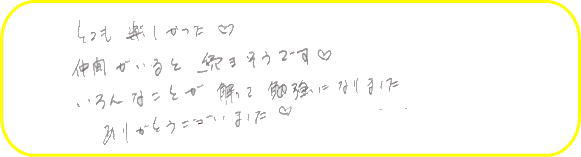 とても楽しかった♡
仲間がいると続きそうです♡
いろんなことが解って勉強になりました
ありがとうございました♡